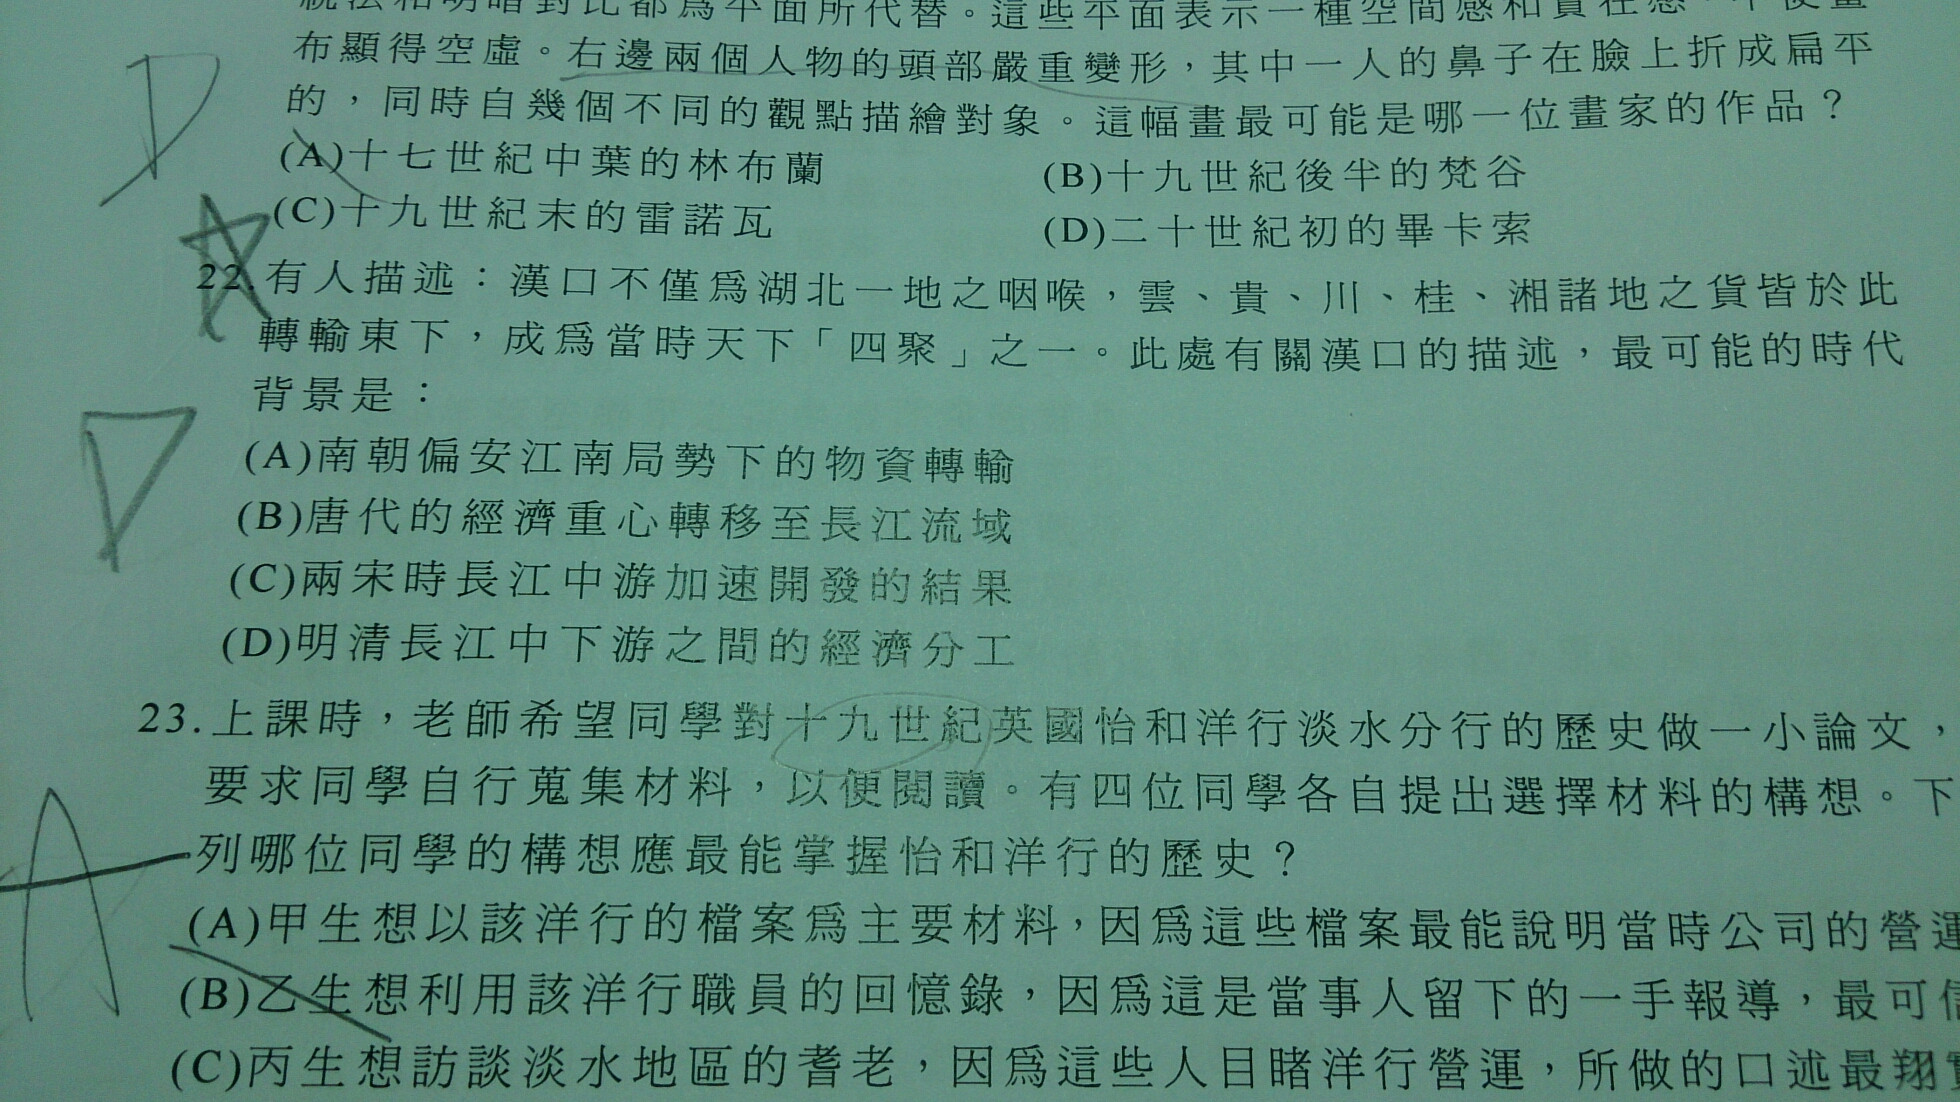 統法和明暗對比都爲平面所代替。這些平面表示一種空間感和實在感,不使畫
布顯得空虛。右邊兩個人物的頭部嚴重變形,其中一人的鼻子在臉上折成扁平
的,同時自幾個不同的觀點描繪對象。這幅畫最可能是哪一位畫家的作品?
(A)十七世紀中葉的林布蘭 (B)十九世紀後半的梵谷
(C)十九世紀末的雷諾瓦 (D)二十世紀初的畢卡索
D
22.有人描述:漢口不僅爲湖北一地之咽喉,雲、貴、川、桂、湘諸地之貨皆於此
轉輸東下,成爲當時天下「四聚」之一。此處有關漢口的描述,最可能的時代
背景是:
(A)南朝偏安江南局勢下的物資轉輸
(B)唐代的經濟重心轉移至長江流域
(C)兩宋時長江中游加速開發的結果
(D)明清長江中下游之間的經濟分工
D
23.上課時,老師希望同學對十九世紀英國怡和洋行淡水分行的歷史做一小論文,
要求同學自行蒐集材料,以便閱讀。有四位同學各自提出選擇材料的構想。下
列哪位同學的構想應最能掌握怡和洋行的歷史?
A
(A)甲生想以該洋行的檔案爲主要材料,因爲這些檔案最能說明當時公司的營運
(B)乙生想利用該洋行職員的回憶錄,因爲這是當事人留下的一手報導,最可信
(C)丙生想訪談淡水地區的耆老,因爲這些人目睹洋行營運,所做的口述最翔實